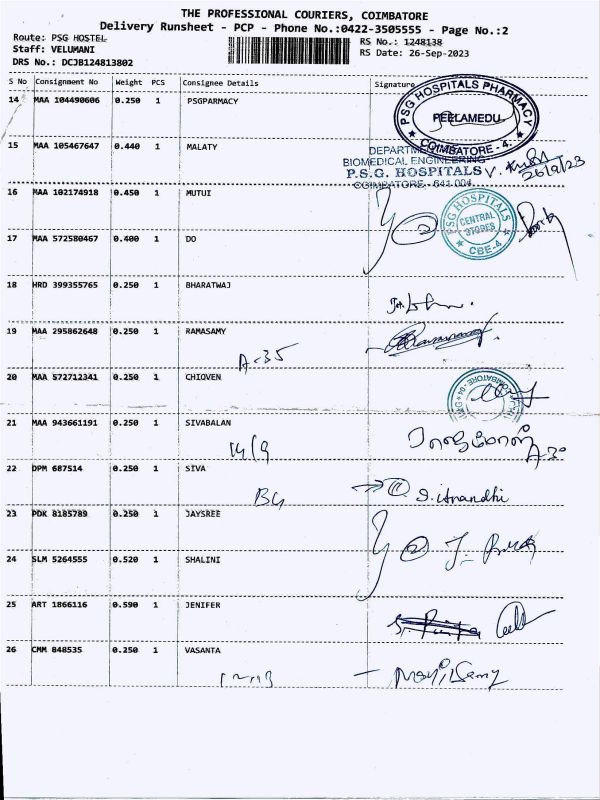 THE PROFESSIONAL COURIERS, COIMBATORE
Delivery Runsheet - PCP - Phone No.:0422-3505555 - Page No.:2
Route: PSG HOSTEL
RS No.: 1248138
Staff: VELUMANI
RS Date: 26-Sep-2023
DRS No.: DCJB124813802
S No Consignment No Weight PCS Consignee Details Signature
14 MAA 104490606 0.250 1 PSGPARMACY
PSG HOSPITALS PHARMACY
PEELAMEDU
COIMBATORE - 4.
15 MAA 105467647 0.440 1 MALATY
BIOMEDICAL ENGINEERING
P.S.G. HOSPITALS
COIMBATORE - 641 004.
26/9/23
16 MAA 102174918 0.450 1 MUTUI
PSG HOSPITALS
CENTRAL
STORES
CBE-4
17 MAA 572580467 0.400 1 DO
18 HRD 399355765 0.250 1 BHARATWAJ
19 MAA 295862648 0.250 1 RAMASAMY
A-35
20 MAA 572712341 0.250 1 CHIOVEN
21 MAA 943661191 0.250 1 SIVABALAN
14/9
A30
22 DPM 687514 0.250 1 SIVA
S. Anandhi
23 PDK 8185789 0.250 1 JAYSREE
24 SLM 5264555 0.520 1 SHALINI
25 ART 1866116 0.590 1 JENIFER
26 CMM 848535 0.250 1 VASANTA